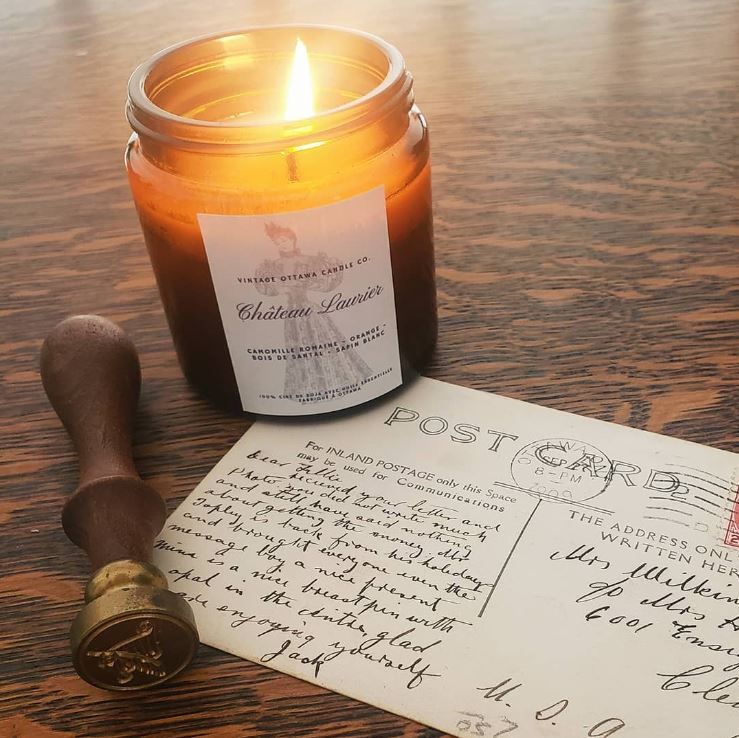 VINTAGE OTTAWA CANDLE CO.
Château Laurier
CAMOMILLE ROMAINE - ORANGE -
BOIS DE SANTAL - SAPIN BLANC
100% CIRE DE SOJA AVEC HUILES ESSENTIELLES
FABRIQUÉ À OTTAWA
POST CARD
For INLAND POSTAGE only this Space
may be used for Communications
Dear
received your letter and
Photo you did not write much
and still have said nothing
about getting the money. Mrs
is back from his holidays
and brought everyone even the
message boy a nice present
mine is a nice breast pin with
opal in the glad
are enjoying yourself
Jack
8-PM
THE ADDRESS ONL
WRITTEN HER
Mrs
c/o Mrs
6001
Cle
U. S. A